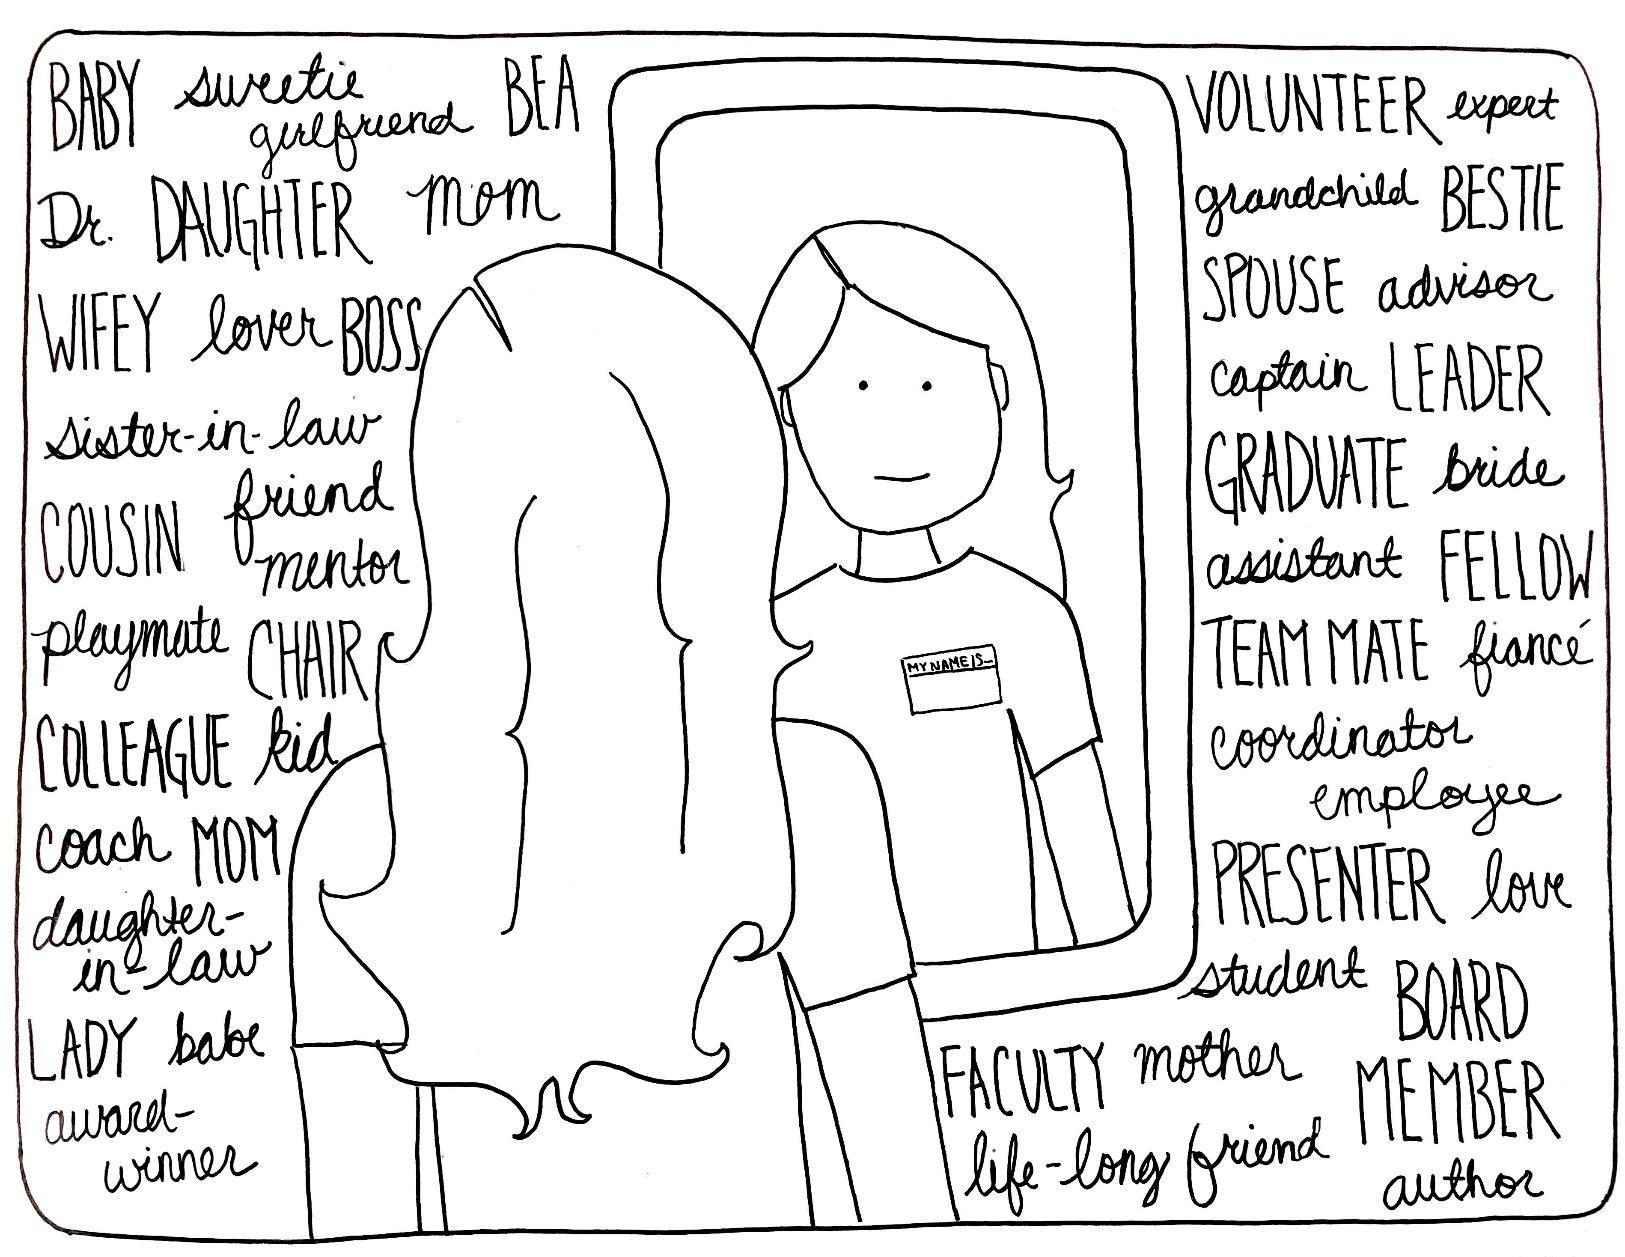 BABY sweetie BEA
girlfriend
Dr. DAUGHTER mom
WIFEY lover BOSS
sister-in-law
COUSIN friend
mentor
playmate CHAIR
COLLEAGUE kid
coach MOM
daughter-
in-law
LADY babe
award-
winner
MY NAME IS_
VOLUNTEER expert
grandchild BESTIE
SPOUSE advisor
captain LEADER
GRADUATE bride
assistant FELLOW
TEAM MATE fiancé
coordinator
employee
PRESENTER love
student BOARD
FACULTY mother MEMBER
life-long friend author